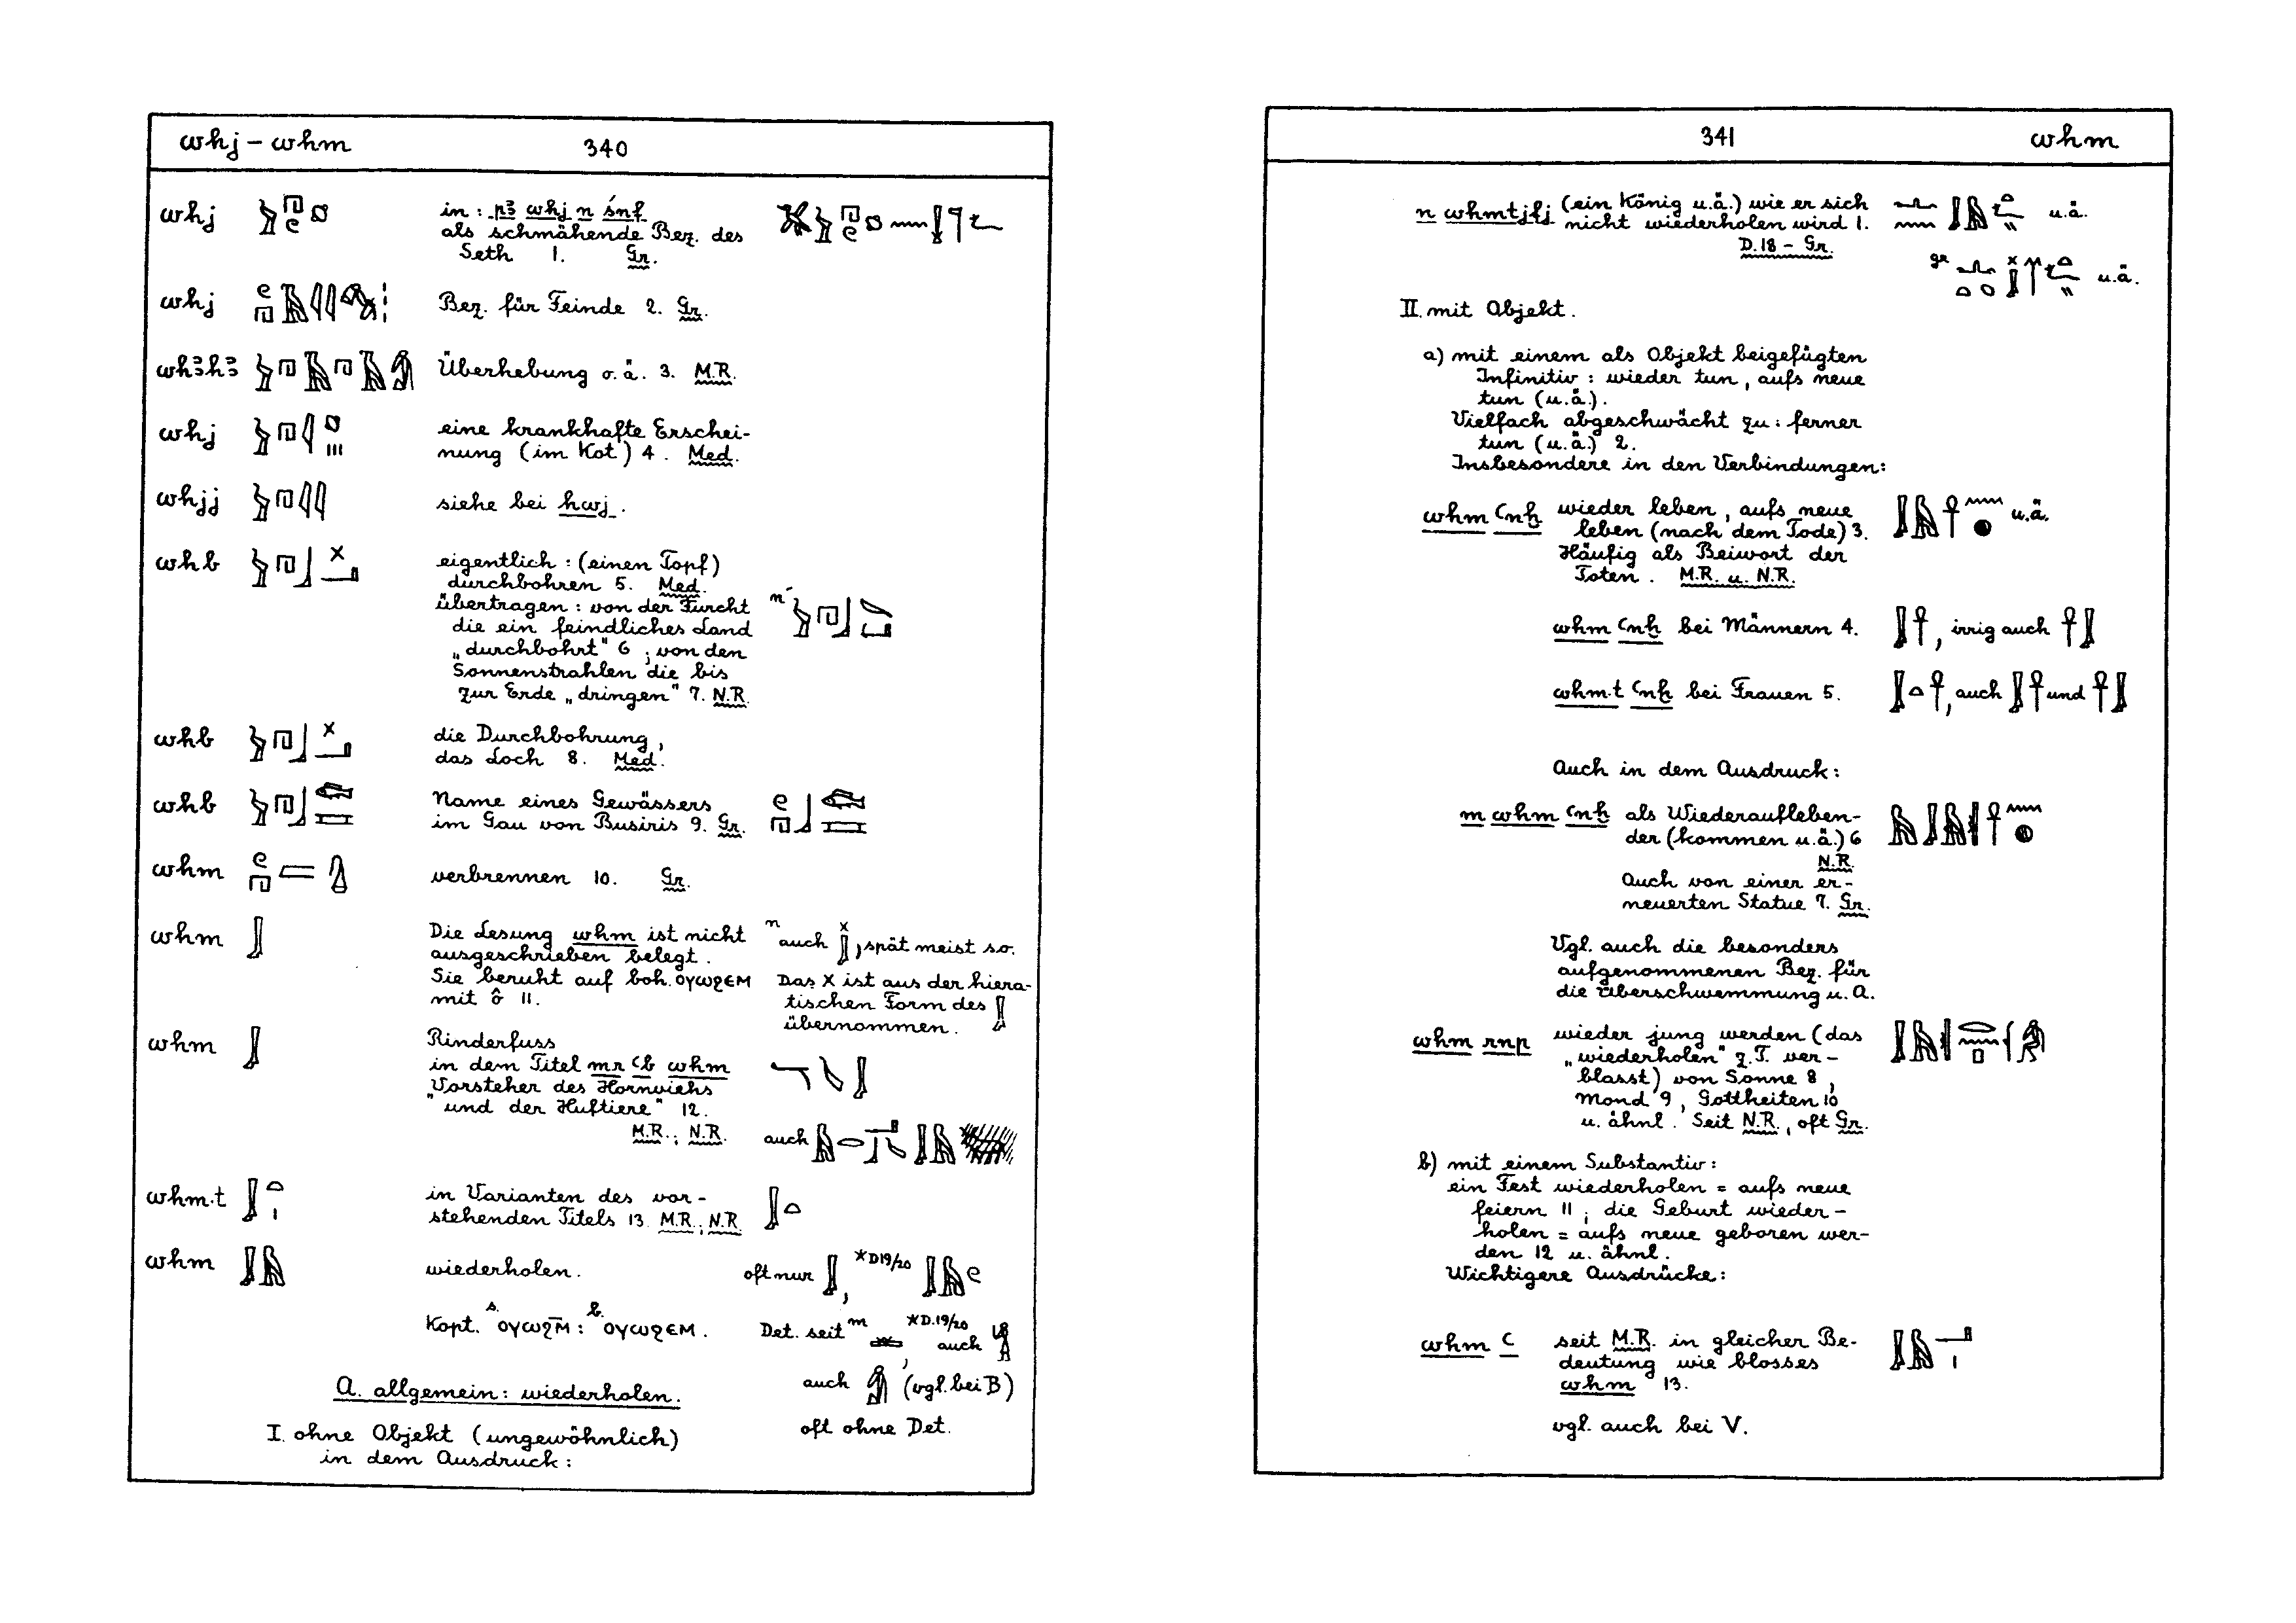 whj – whm 340
whj in : pꜣ whj n śnf
als schmähende Bez. des
Seth 1. Gr.
whj Bez. für Feinde 2. Gr.
whꜣhꜣ Überhebung o.ä. 3. M.R.
whj eine krankhafte Erschei-
nung (im Kot) 4. Med.
whjj siehe bei hwj.
whb eigentlich : (einen Topf)
durchbohren 5. Med.
übertragen : von der Furcht
die ein feindliches Land
„durchbohrt" 6 ; von den
Sonnenstrahlen die bis
zur Erde „dringen" 7. N.R.
whb die Durchbohrung,
das Loch 8. Med.
whb Name eines Gewässers
im Gau von Busiris 9. Gr.
whm verbrennen 10. Gr.
whm Die Lesung whm ist nicht
ausgeschrieben belegt.
Sie beruht auf boh. ⲟⲩⲱϩⲉⲙ
mit ô 11.
n auch , spät meist so.
Das X ist aus der hiera-
tischen Form des
übernommen.
whm Rinderfuss
in dem Titel mr ꜥb whm
„Vorsteher des Hornviehs
und der Huftiere" 12.
M.R.; N.R. auch
whm.t in Varianten des vor-
stehenden Titels 13. M.R.; N.R.
whm wiederholen. oft nur , *D19/20
Kopt. s. ⲟⲩⲱϩⲙ̅ : b. ⲟⲩⲱϩⲉⲙ. Det. seit m , *D.19/20 auch
auch (vgl. bei B)
oft ohne Det.
A. allgemein : wiederholen.
I. ohne Objekt (ungewöhnlich)
in dem Ausdruck :
341 whm
n whmtjfj (ein König u.ä.) wie er sich
nicht wiederholen wird 1. u.ä.
D.18 – Gr.
gr u.ä.
II. mit Objekt.
a) mit einem als Objekt beigefügten
Infinitiv : wieder tun, aufs neue
tun (u.ä.).
Vielfach abgeschwächt zu : ferner
tun (u.ä.) 2.
Insbesondere in den Verbindungen:
whm ꜥnḫ wieder leben, aufs neue
leben (nach dem Tode) 3. u.ä.
Häufig als Beiwort der
Toten. M.R. u. N.R.
whm ꜥnḫ bei Männern 4. , irrig auch
whm.t ꜥnḫ bei Frauen 5. , auch und
Auch in dem Ausdruck :
m whm ꜥnḫ als Wiederaufleben-
der (kommen u.ä.) 6
N.R.
Auch von einer er-
neuerten Statue 7. Gr.
Vgl. auch die besonders
aufgenommenen Bez. für
die Überschwemmung u. A.
whm rnp wieder jung werden (das
„wiederholen" z.T. ver-
blasst) von Sonne 8,
Mond 9, Gottheiten 10
u. ähnl. Seit N.R., oft Gr.
b) mit einem Substantiv :
ein Fest wiederholen = aufs neue
feiern 11 ; die Geburt wieder-
holen = aufs neue geboren wer-
den 12 u. ähnl.
Wichtigere Ausdrücke :
whm ꜥ seit M.R. in gleicher Be-
deutung wie blosses
whm 13.
vgl. auch bei V.